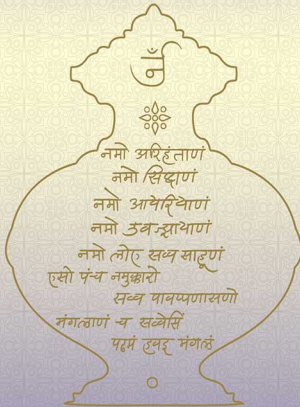 नमो अरिहंताणं
नमो सिद्धाणं
नमो आयरियाणं
नमो उवज्झायाणं
नमो लोए सव्व साहूणं
एसो पंच नमुक्कारो
सव्व पावप्पणासणो
मंगलाणं च सव्वेसिं
पढमं हवइ मंगलं